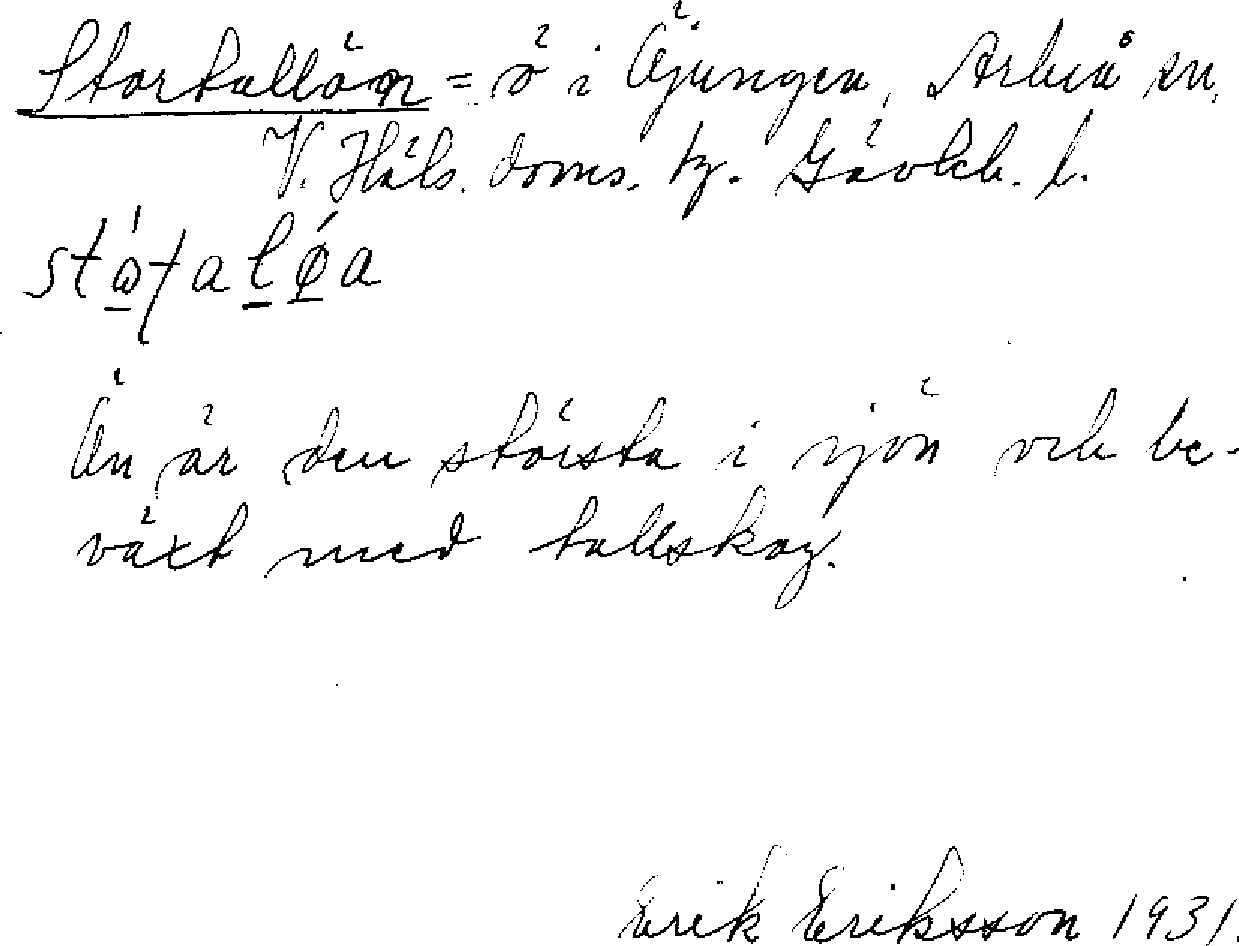 Stortallön = ö i Öjungen, Arbrå sn,
V. Häls. doms. tg. Gävleb. l.
Ön är den största i sjön och be-
växt med tallskog.
Erik Eriksson 1931.